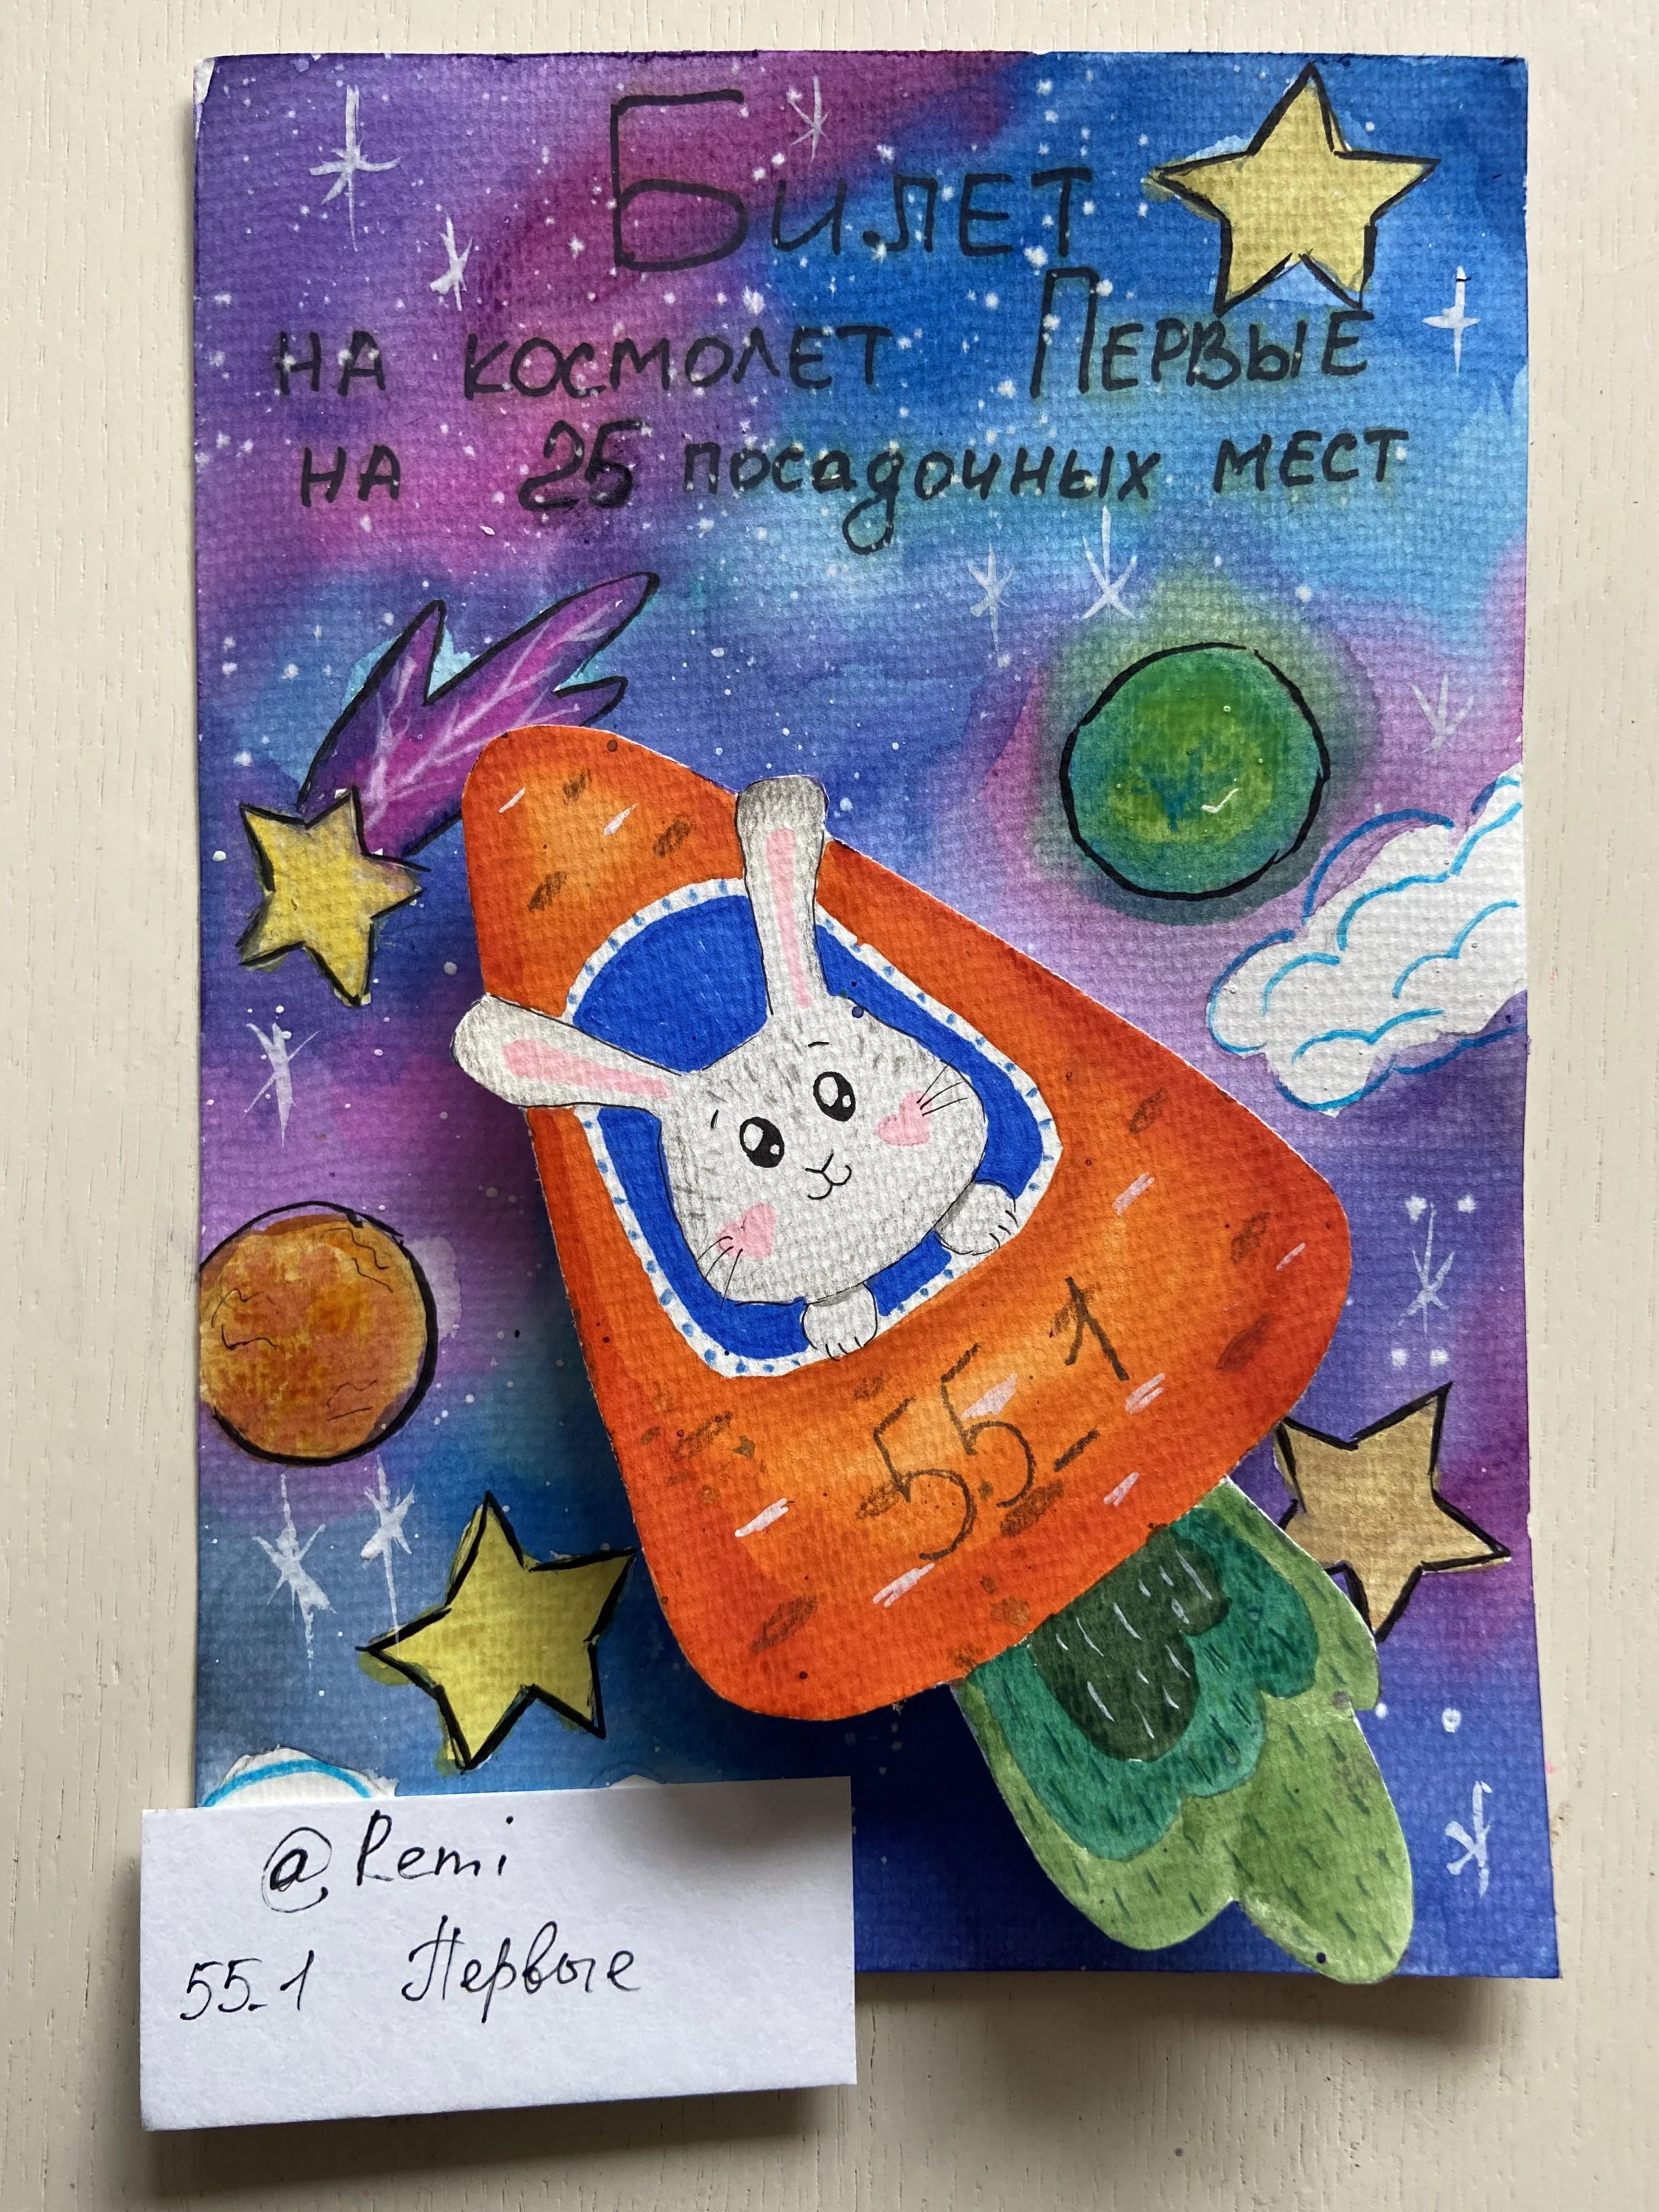 Билет
на космолет Первые
на 25 посадочных мест
55_1
@Remi
55_1 Первые